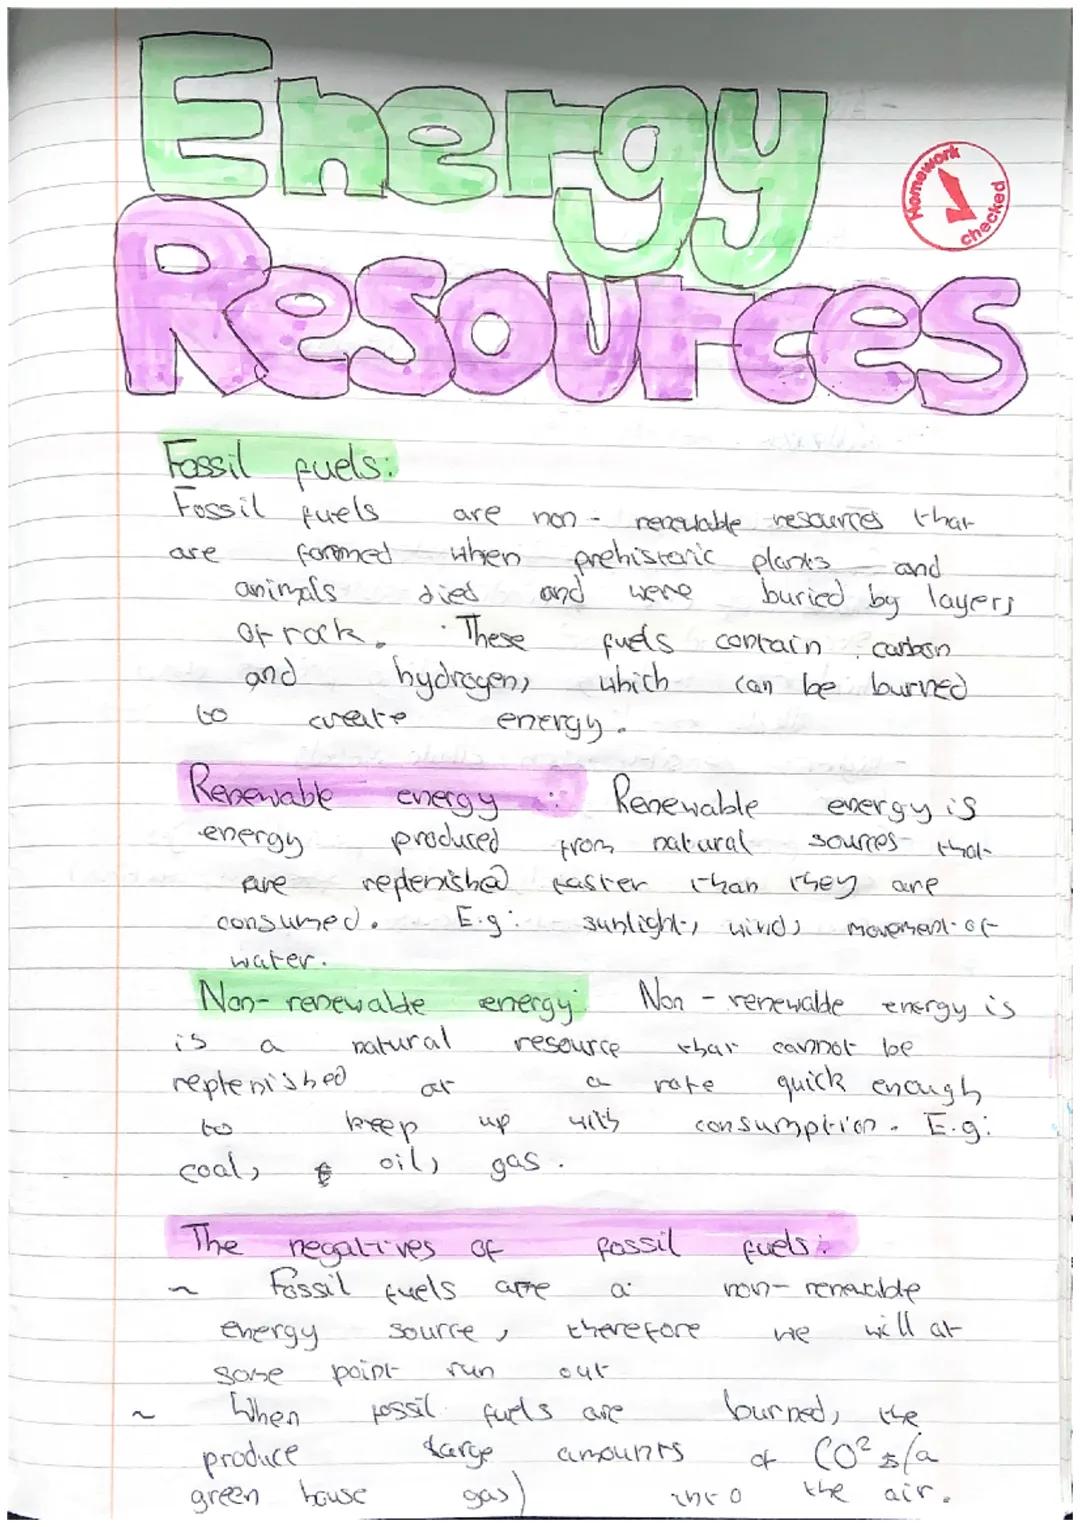 Energy
Resources
Homework
checked
Fossil fuels:
Fossil fuels are non - renewable resources that
are formed when prehistoric plants and
animals died and were buried by layers
of rock. These fuels contain carbon
and hydrogen, which can be burned
to create energy.
Renewable energy : Renewable energy is
energy produced from natural sources that
are replenished faster than they are
consumed. E.g: sunlight, wind, movement of
water.
Non- renewable energy: Non - renewable energy is
is a natural resource that cannot be
replenished at a rate quick enough
to keep up with consumption. E.g:
coal, oil, gas.
The negatives of fossil fuels:
~ Fossil fuels are a non- renewable
energy source, therefore we will at
some point run out
~ When fossil fuels are burned, the
produce large amounts of CO² (a
green house gas) into the air.